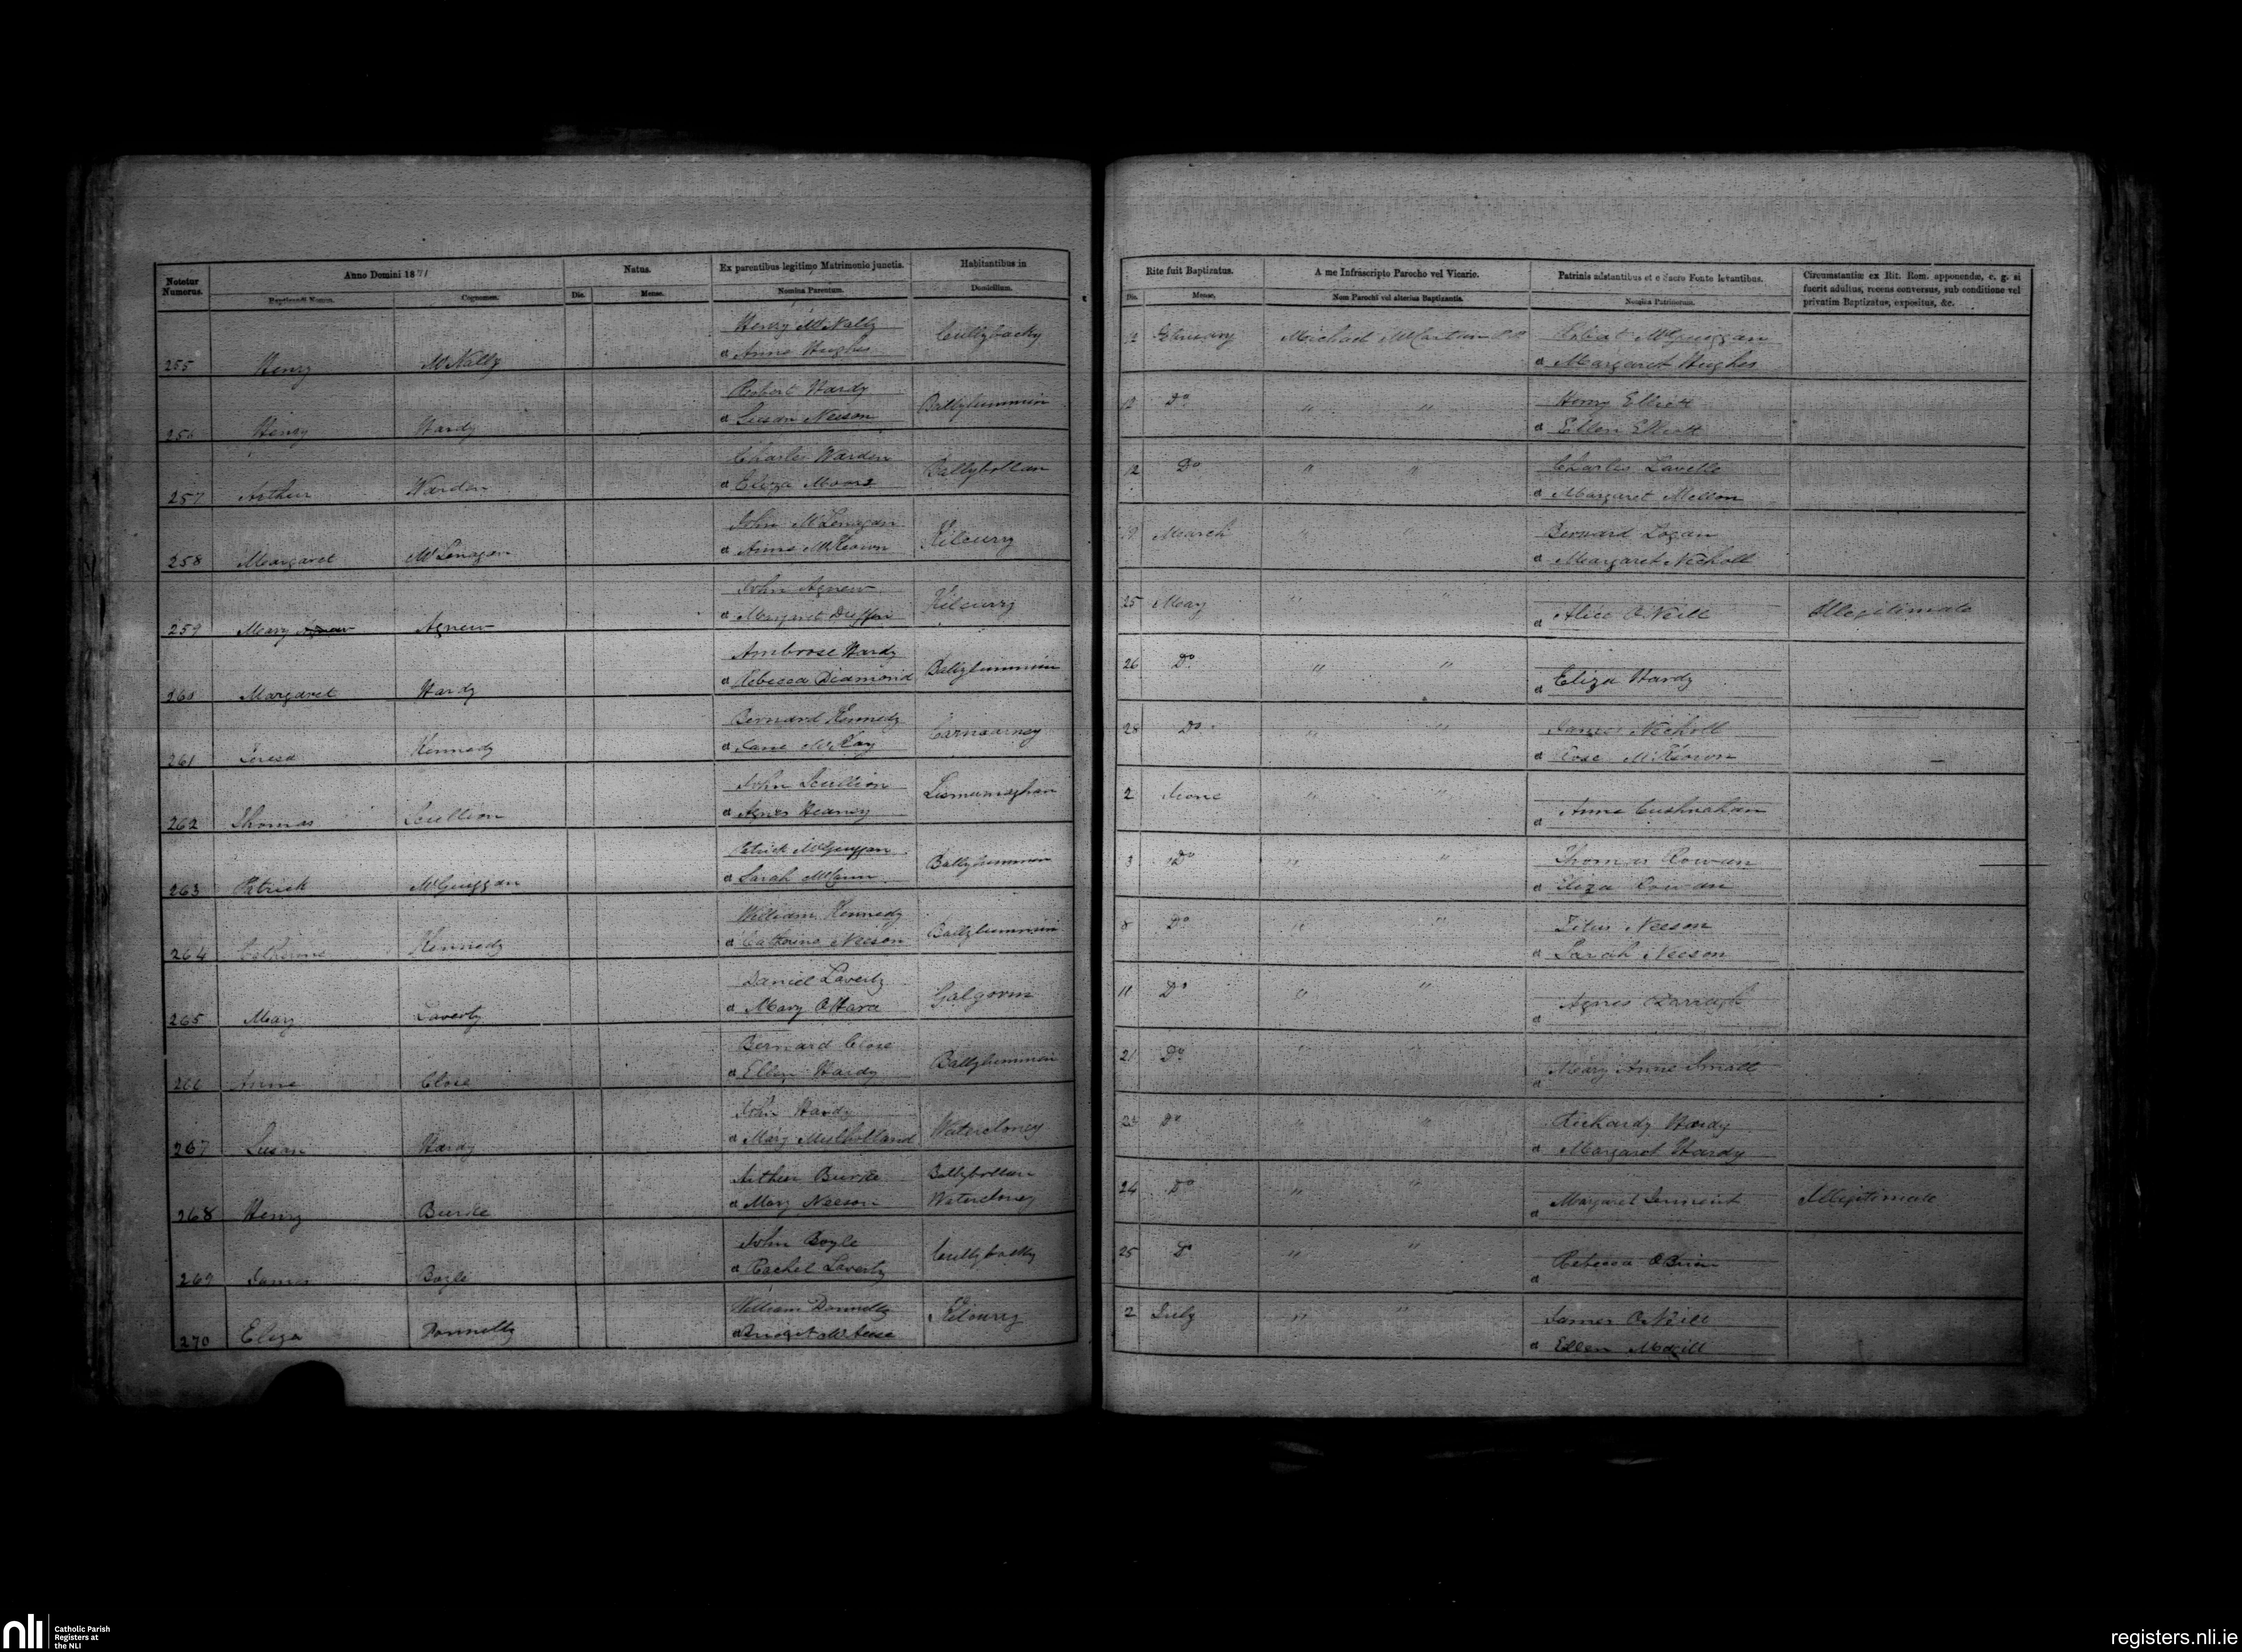 Notetur Numerus.
Anno Domini 1871
Baptizandi Nomen.
Cognomen.
Natus.
Die.
Mense.
Ex parentibus legitimo Matrimonio junctis.
Nomina Parentum.
Habitantibus in
Domicilium.
Henry McNally
255 Henry McNally
& Anne Hughes
Cullybacky
Robert Hardy
256 Henry Hardy
& Susan Neeson
Ballylummin
Charles Warden
257 Arthur Warden
& Eliza Moore
Ballybollan
John McLenagan
258 Margaret McLenagan
& Anne McKeown
Kilcurry
John Agnew
259 Mary Agnew Agnew
& Margaret Duffin
Kilcurry
Ambrose Hardy
260 Margaret Hardy
& Rebecca Diamond
Ballylummin
Bernard Kennedy
261 Teresa Kennedy
& Jane McKay
Carnaarney
John Scullion
262 Thomas Scullion
& Agnes Heaney
Lismurnaghan
Patrick McGuiggan
263 Patrick McGuiggan
& Sarah McCann
Ballylummin
William Kennedy
264 Catherine Kennedy
& Catherine Neeson
Ballylummin
Daniel Laverty
265 Mary Laverty
& Mary O'Hara
Galgorm
Bernard Close
266 Anne Close
& Ellen Hardy
Ballylummin
John Hardy
267 Susan Hardy
& Mary Mulholland
Watercloney
Arthur Burke
268 Henry Burke
& Mary Neeson
Ballybollan
Watercloney
John Boyle
269 James Boyle
& Rachel Laverty
Cullybacky
William Donnelly
270 Eliza Donnelly
& Bridget McAleese
Kilcurry
Rite fuit Baptizatus.
Die.
Mense.
A me Infrascripto Parocho vel Vicario.
Nom Parochi vel alterius Baptizantis.
Patrinis adstantibus et e Sacro Fonte levantibus.
Nomina Patrinorum.
Circumstantiæ ex Rit. Rom. apponendæ, e. g. si
fuerit adultus, recens conversus, sub conditione vel
privatim Baptizatus, expositus, &c.
12 February Michael McCartan P.P. Robert McGuiggan
& Margaret Hughes
12 Do " " Henry Elliott
& Ellen Elliott
12 Do " " Charles Lavelle
& Margaret Mellon
19 March " " Bernard Logan
& Margaret Nicholl
25 May " "
& Alice O'Neill Illegitimate
26 Do " "
& Eliza Hardy
28 Do " " James Nicholl
& Rose McKeown
2 June " "
& Anne Cushnahan
3 Do " " Thomas Rowan
& Eliza Rowan
8 Do " " Titus Neeson
& Sarah Neeson
11 Do " " Agnes Darragh
&
21 Do " " Mary Anne Small
&
23 Do " " Richardy Hardy
& Margaret Hardy
24 Do " "
& Margaret Serment Illegitimate
25 Do " " Rebecca O'Brien
&
2 July " " James O'Neill
& Ellen Magill
nli
Catholic Parish
Registers at
the NLI
registers.nli.ie